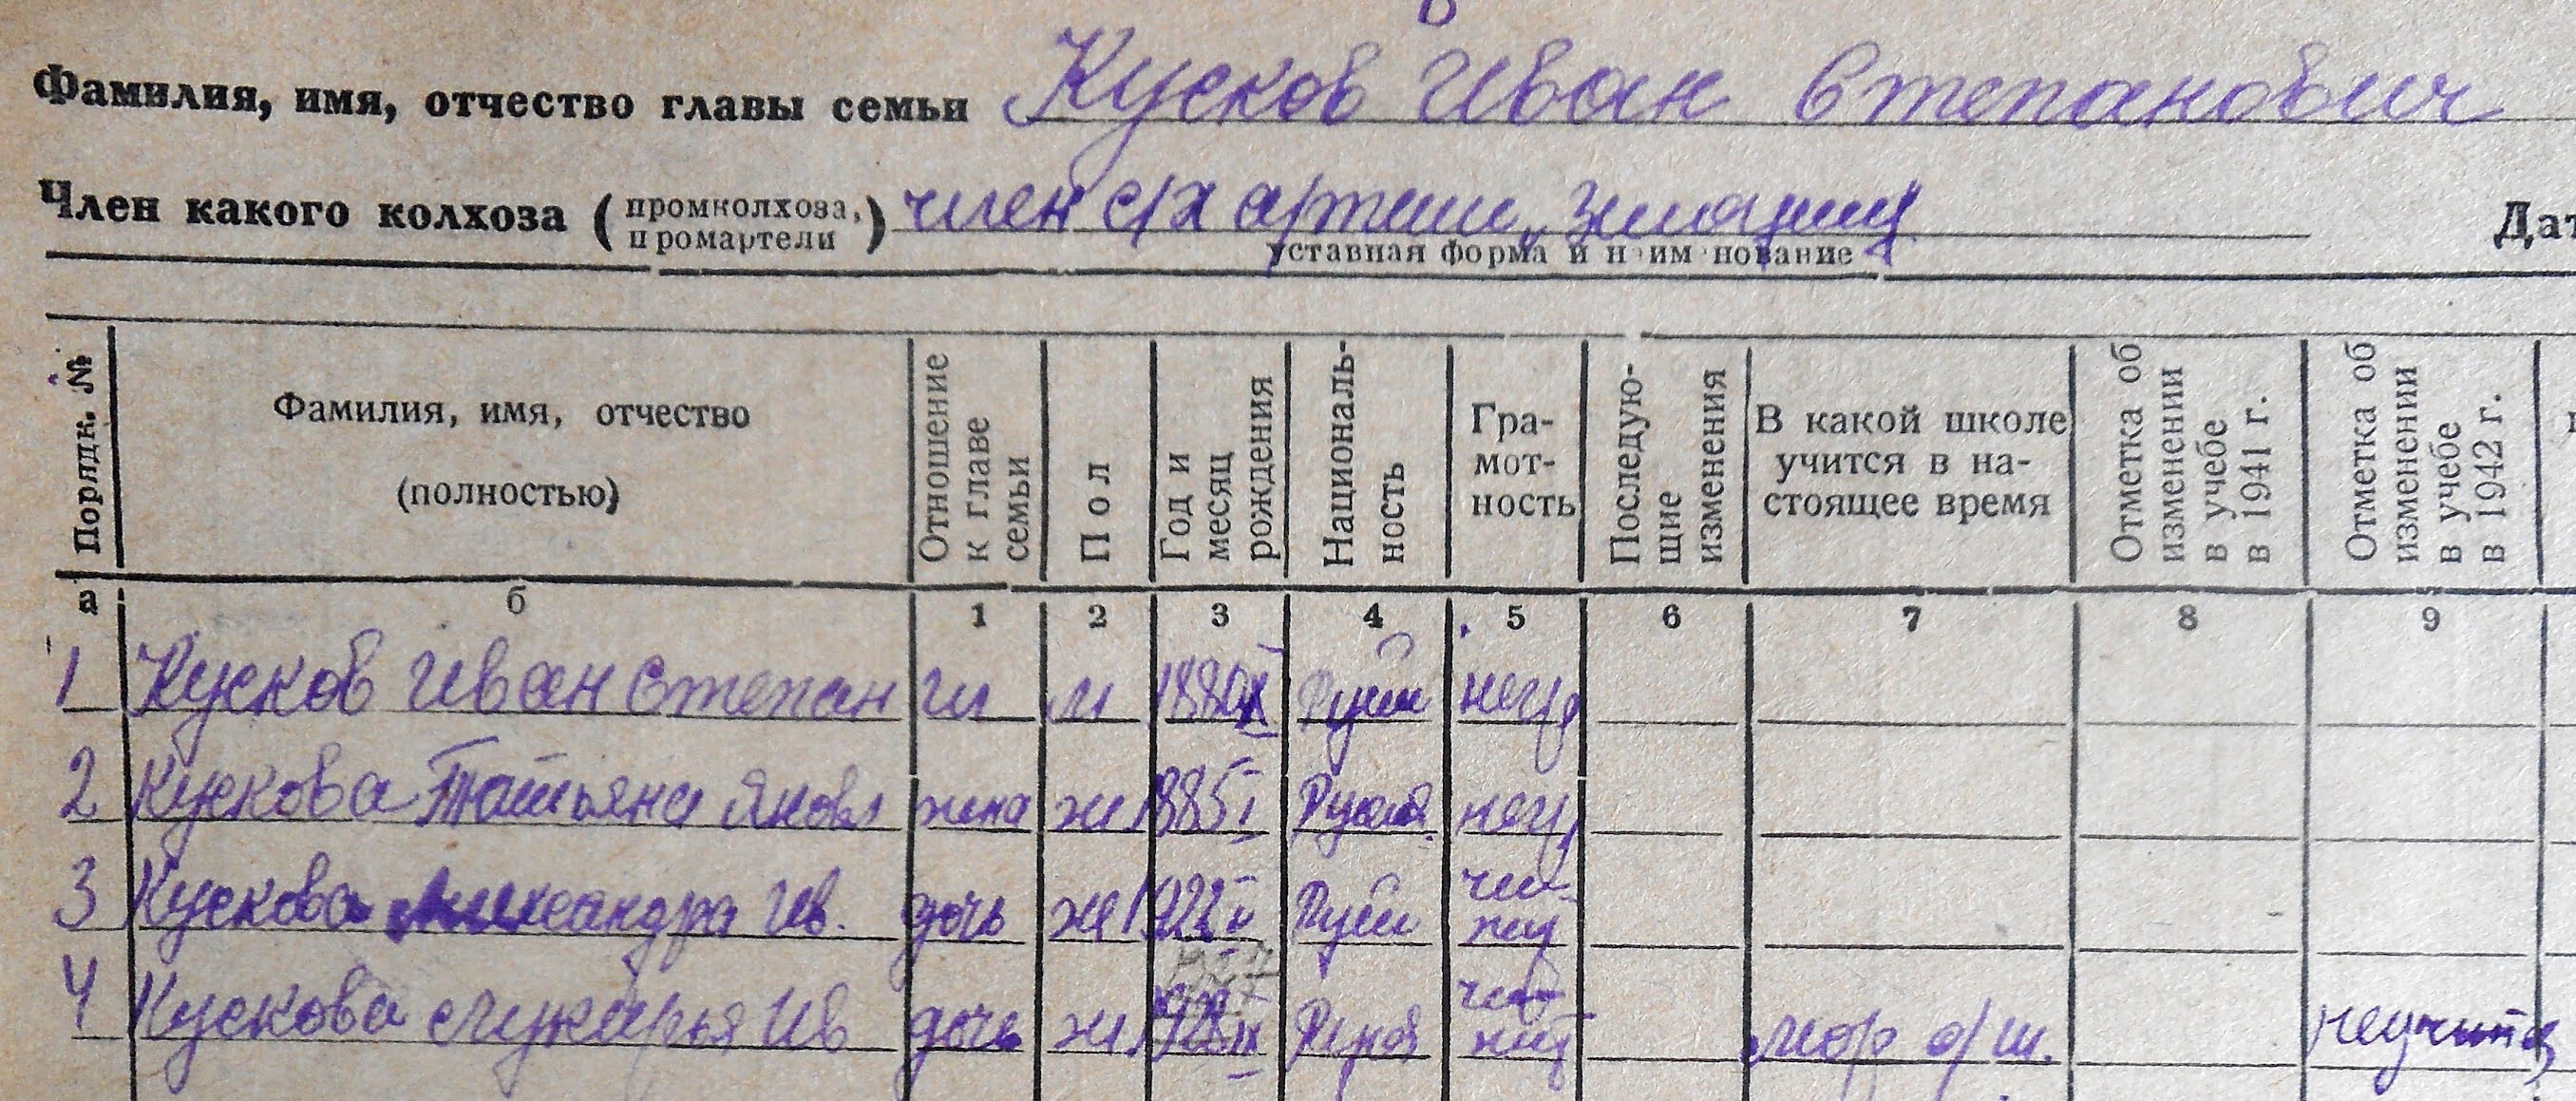 Фамилия, имя, отчество главы семьи Кусков Иван Степанович
Член какого колхоза (промколхоза, промартели) член с/х артели
уставная форма и наименование
Дат
Порядк. №
Фамилия, имя, отчество (полностью)
Отношение к главе семьи
Пол
Год и месяц рождения
Националь-ность
Гра-мот-ность
Последую-щие изменения
В какой школе учится в на-стоящее время
Отметка об изменении в учебе в 1941 г.
Отметка об изменении в учебе в 1942 г.
а б 1 2 3 4 5 6 7 8 9
1 Кусков Иван Степан гл м 1880 негр
2 Кускова Татьяна Яковл жена ж 1885 I Руская негр
3 Кускова Александра Ив. дочь ж 1922
4 Кускова Ив дочь ж неучится